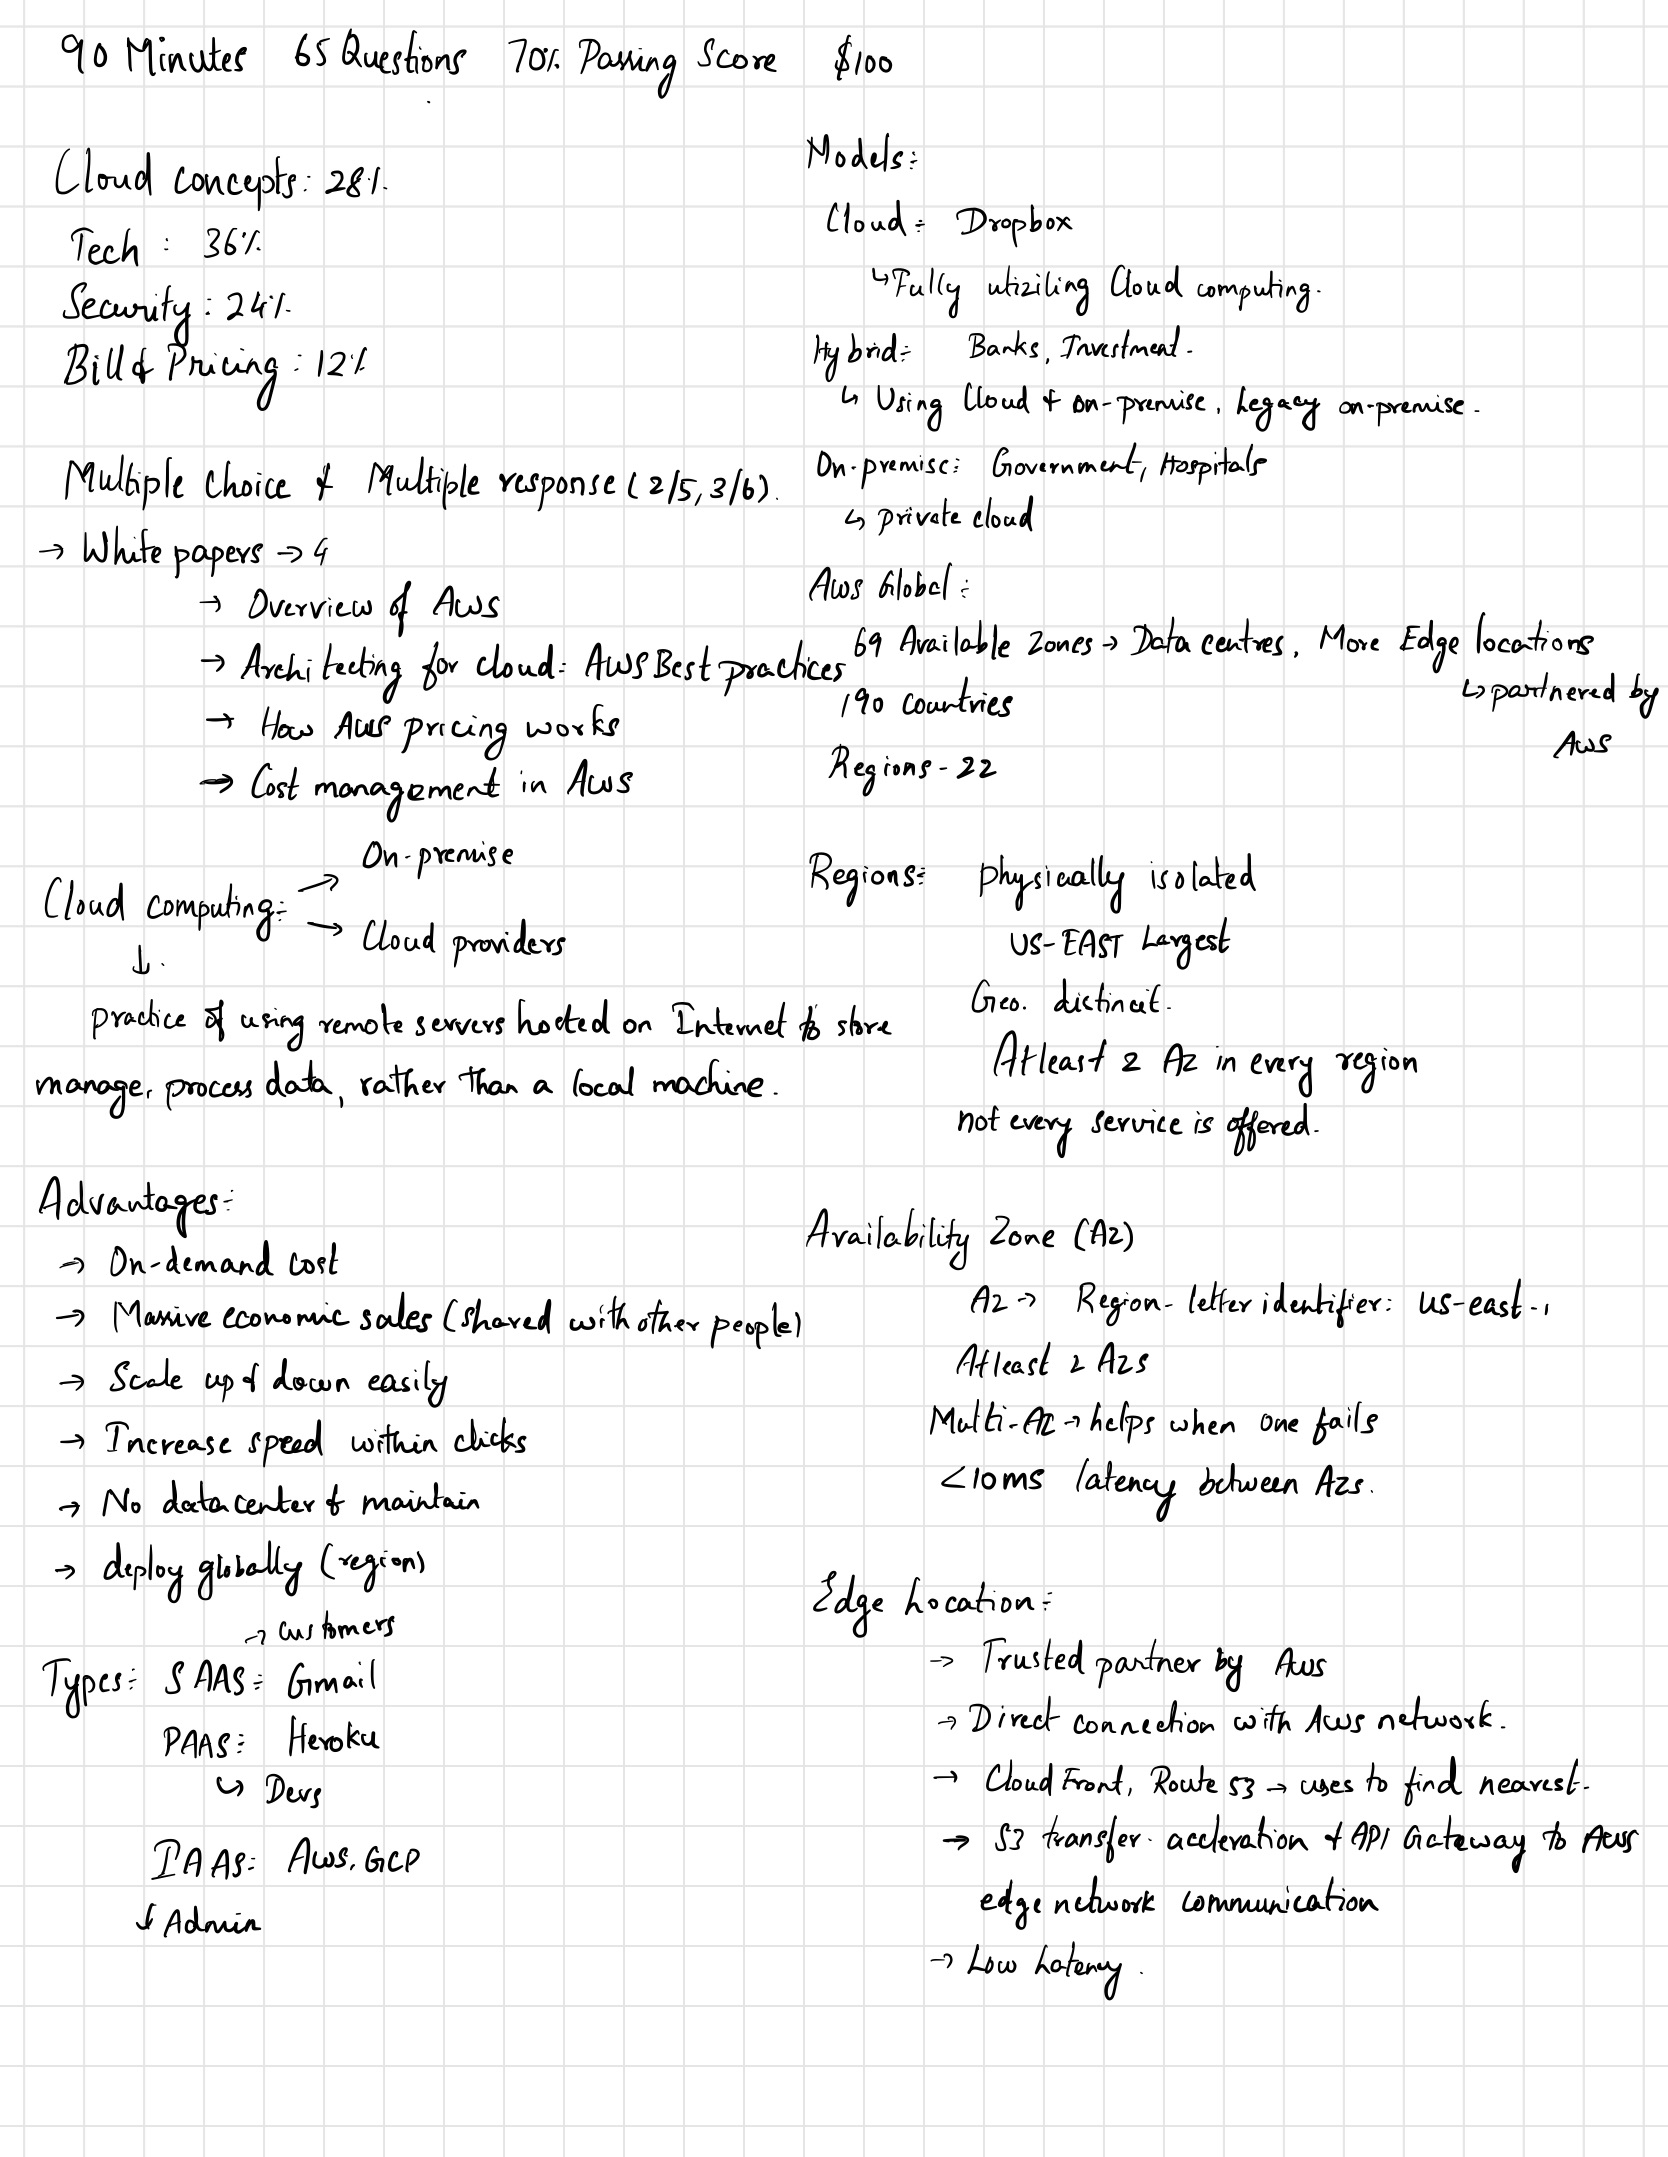 90 Minutes 65 Questions 70% Passing Score $100
Cloud concepts: 28%
Tech : 36%
Security: 24%
Bill & Pricing : 12%
Multiple Choice & Multiple response (2/5, 3/6).
→ White papers → 4
→ Overview of Aws
→ Architecting for cloud: AWS Best practices
→ How AWS pricing works
→ Cost management in Aws
Cloud computing:
→ On-premise
→ Cloud providers
↓
practice of using remote servers hosted on Internet to store
manage, process data, rather than a local machine.
Advantages:
→ On-demand cost
→ Massive economic sales (shared with other people)
→ Scale up & down easily
→ Increase speed within clicks
→ No datacenter & maintain
→ deploy globally (region)
→ customers
Types: SAAS: Gmail
PAAS: Heroku
↳ Devs
IAAS: Aws, GCP
↓ Admin
Models:
Cloud: Dropbox
↳ Fully utiziling Cloud computing.
Hybrid: Banks, Investment.
↳ Using Cloud & on-premise, Legacy on-premise.
On-premise: Government, Hospitals
↳ private cloud
Aws Global:
69 Available Zones → Data centres, More Edge locations
↳ partnered by
Aws
190 countries
Regions - 22
Regions: physically isolated
US-EAST Largest
Geo. distincit.
Atleast 2 AZ in every region
not every service is offered.
Availability Zone (AZ)
AZ → Region-letter identifier: us-east-1
Atleast 2 AZs
Multi-AZ → helps when one fails
<10ms latency between AZs.
Edge Location:
→ Trusted partner by Aws
→ Direct connection with Aws network.
→ Cloud Front, Route 53 → uses to find nearest.
→ S3 transfer accleration & API Gateway to Aws
edge network communication
→ Low Latency.